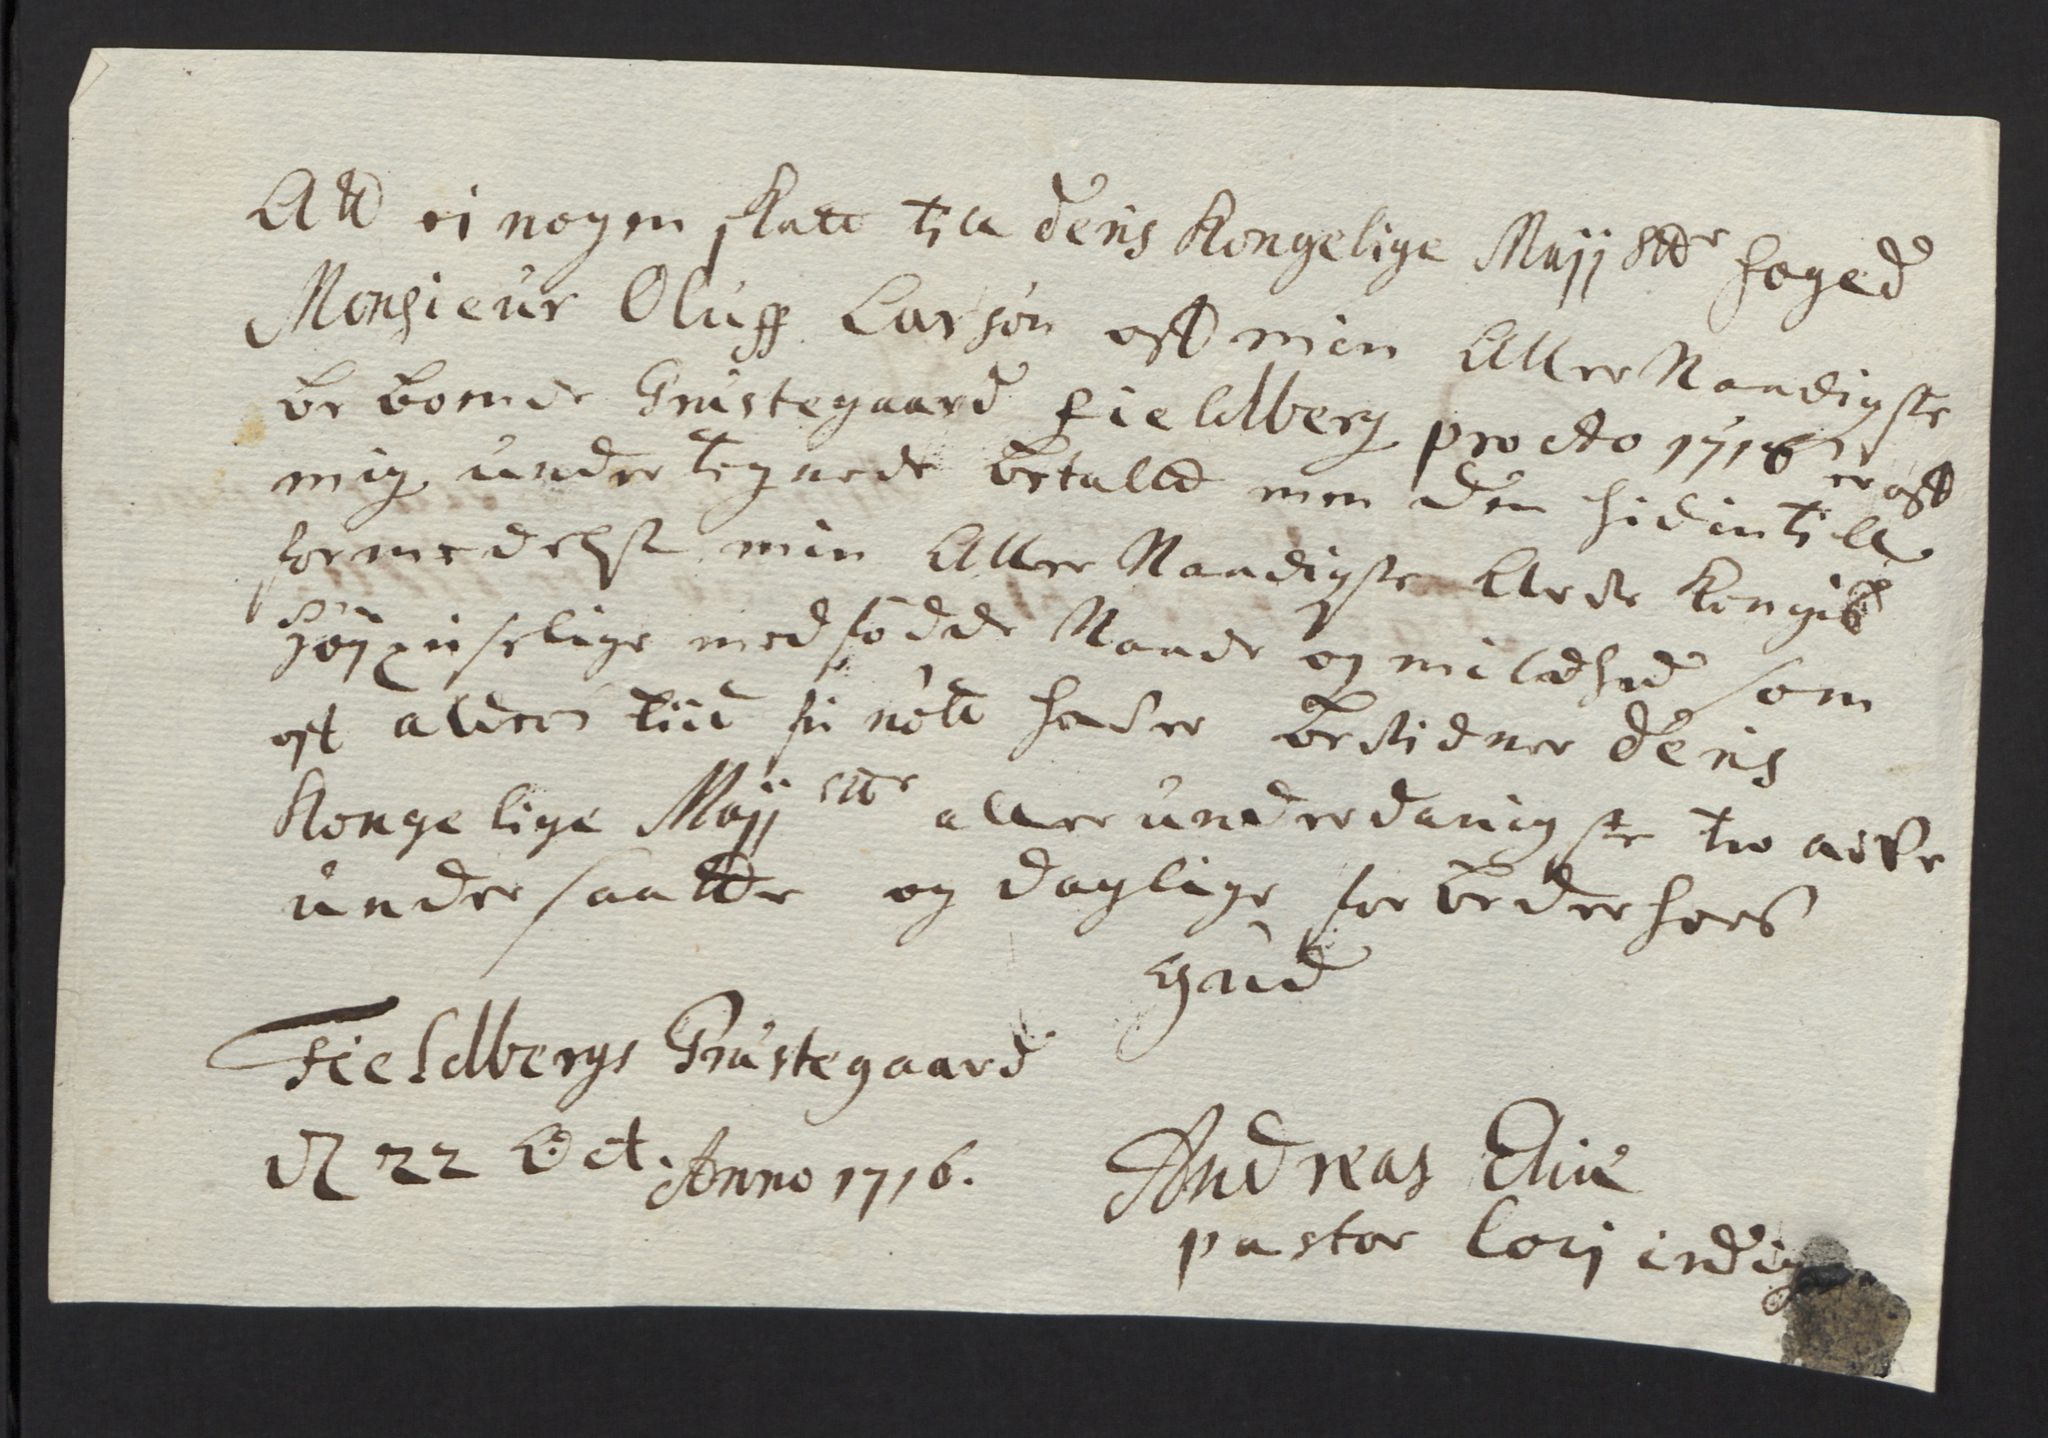 Att ei nogen skatt till deris Kongelige Majj stts foged
Monsieur Oluff Larsön aff min Aller Naadigste
be boende Præstegaard Fieldberg pro Ao 1716 er aff
mig under tegnede betalld men den hidintill
formedelst min Aller Naadigste Arfve Kongis
Höypriselige medfödde Naade og mildhed som
aff alders tiid har nött hafver bekiender deris
Kongelige Majj stts aller underdanigste troe arfve
undersaatte og daglige forbeder hoes
Gud
Fieldbergs Præstegaard
d 22 Oct. Anno 1716.
Andreas Eliæ
pastor loci indig